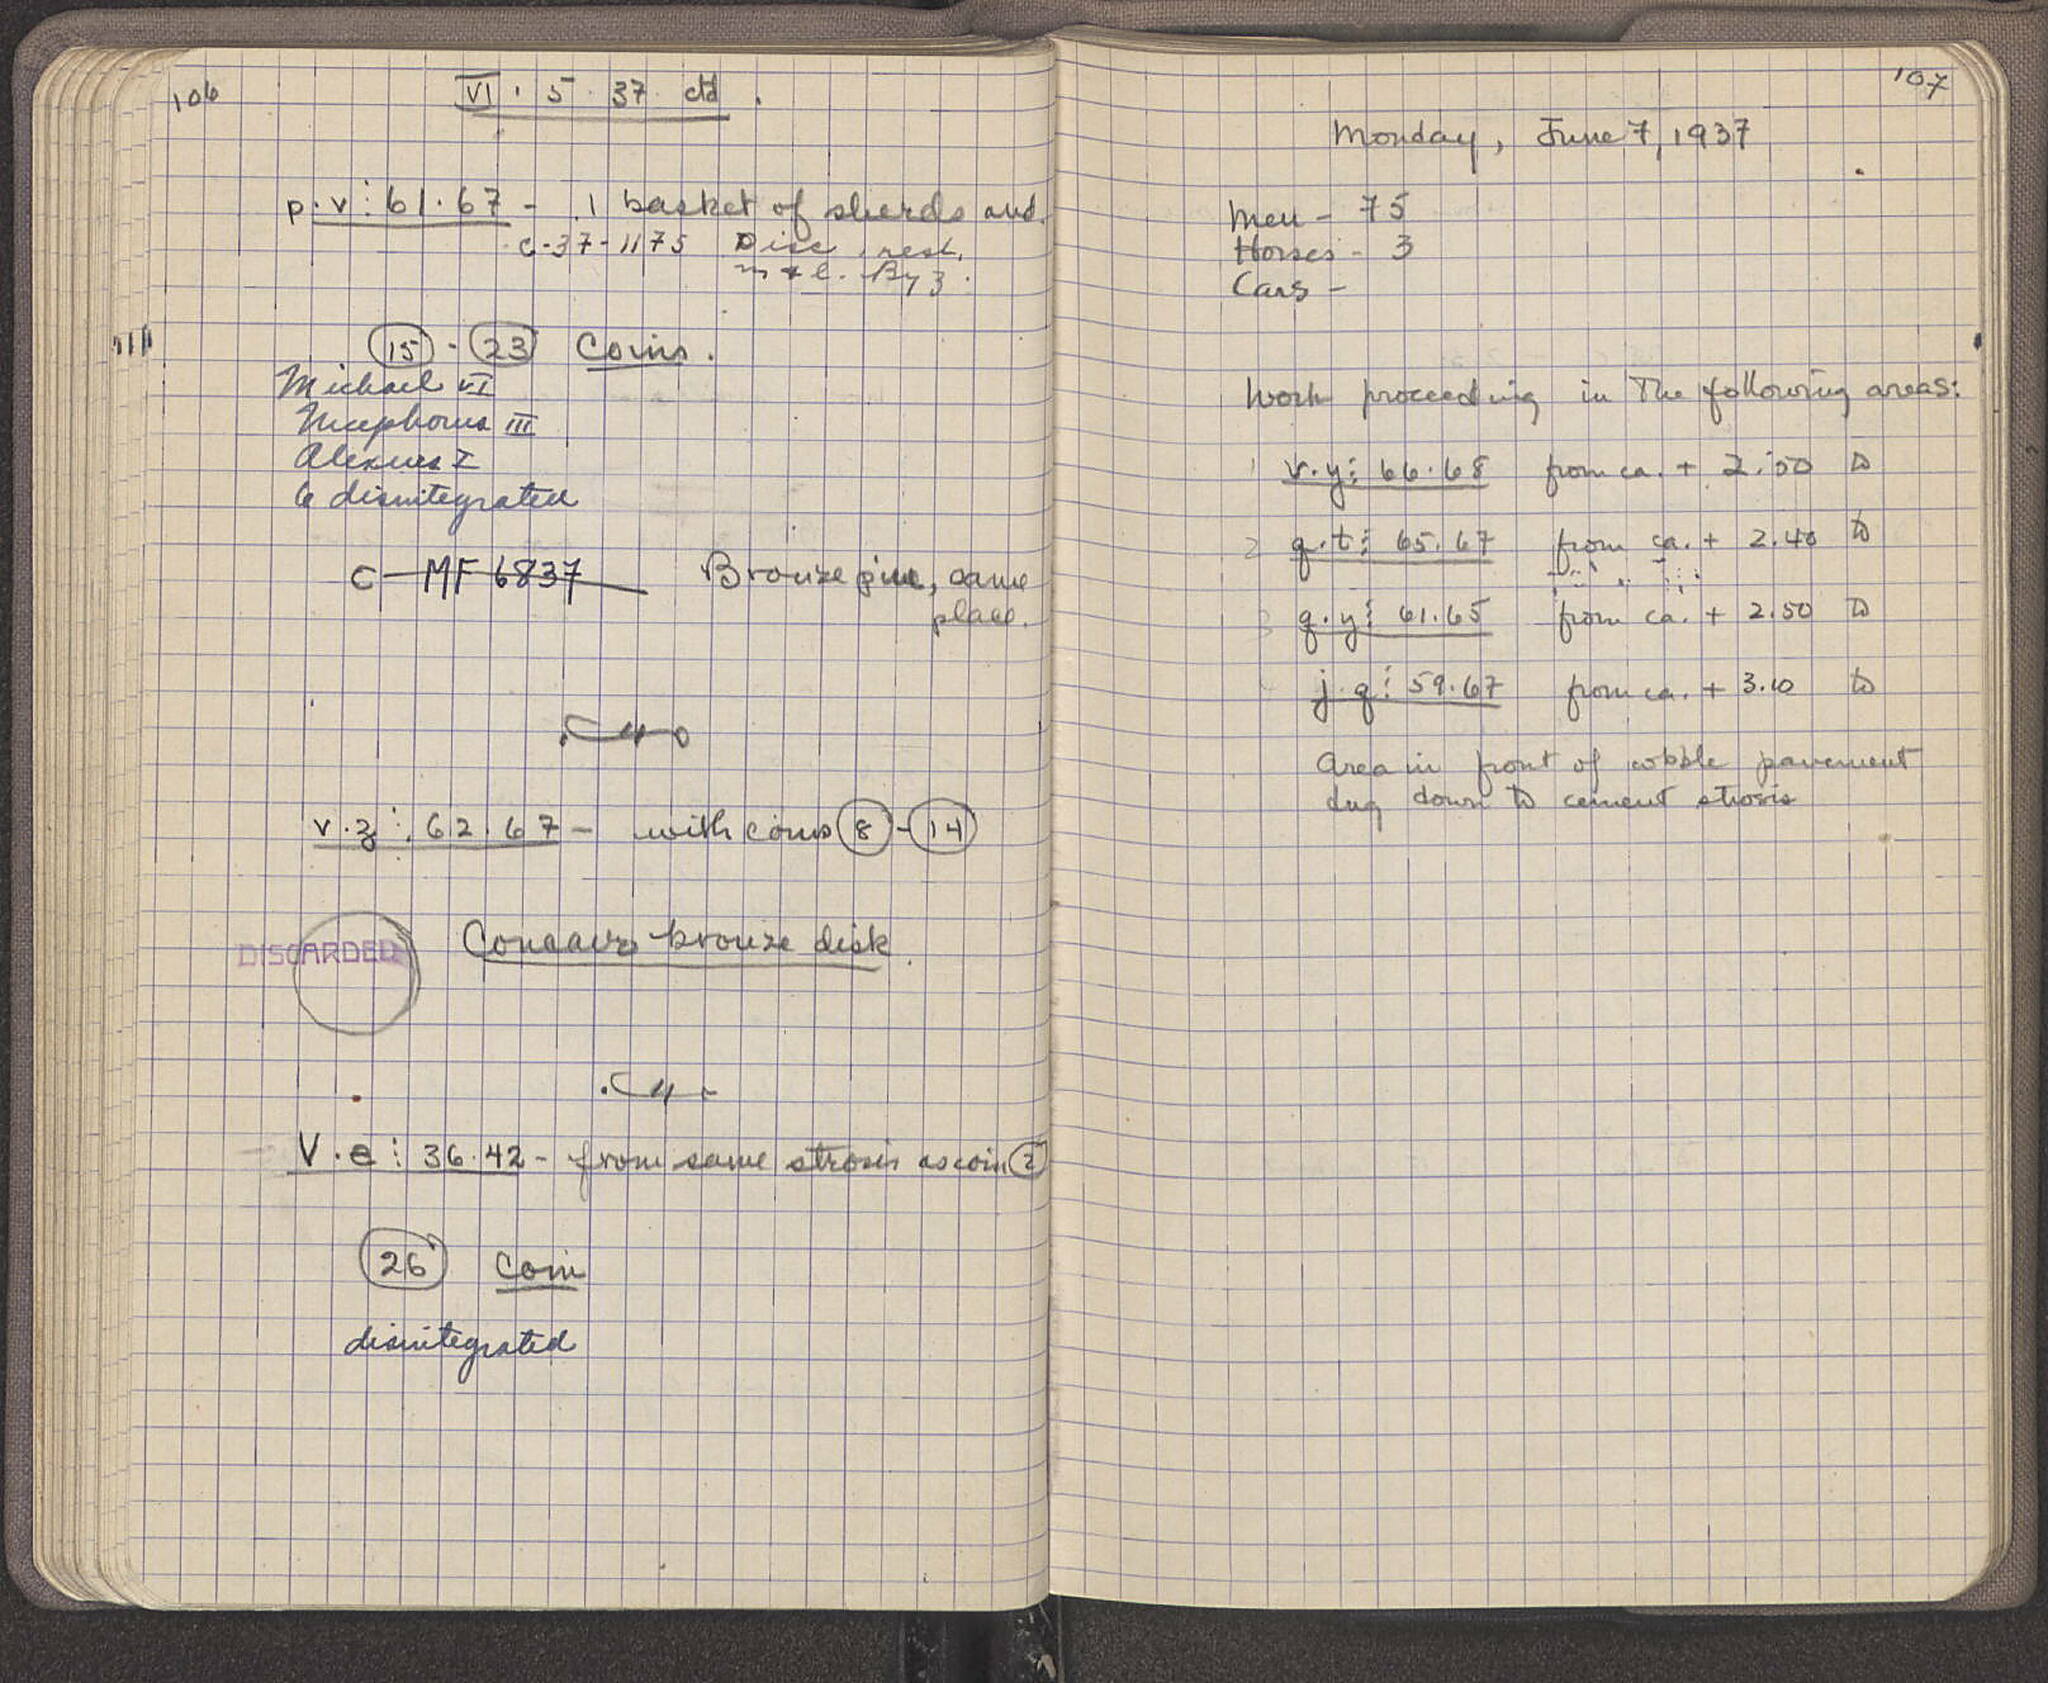 106
VI . 5 . 37 ctd .
p.v: 61.67 - 1 basket of sherds and
C-37-1175 Disc, rest.
By 3.
15 - 23 Coins.
Michael VI
Nicephorus III
Alexius I
6 disintegrated
C - MF 6837 Bronze pin, same
place.
v.z: 62.67 - with coins 8 - 14
DISCARDED Concave bronze disk.
V.e: 36.42 - from same strosis as coin 2
26 Coin
disintegrated
107
Monday, June 7, 1937
Men - 75
Horses - 3
Cars -
Work proceeding in the following areas:
1 v.y: 66.68 from ca. + 2.50 to
2 q.t: 65.67 from ca. + 2.40 to
3 q.y: 61.65 from ca. + 2.50 to
j.q: 59.67 from ca. + 3.10 to
Area in front of cobble pavement
dug down to cement strosis